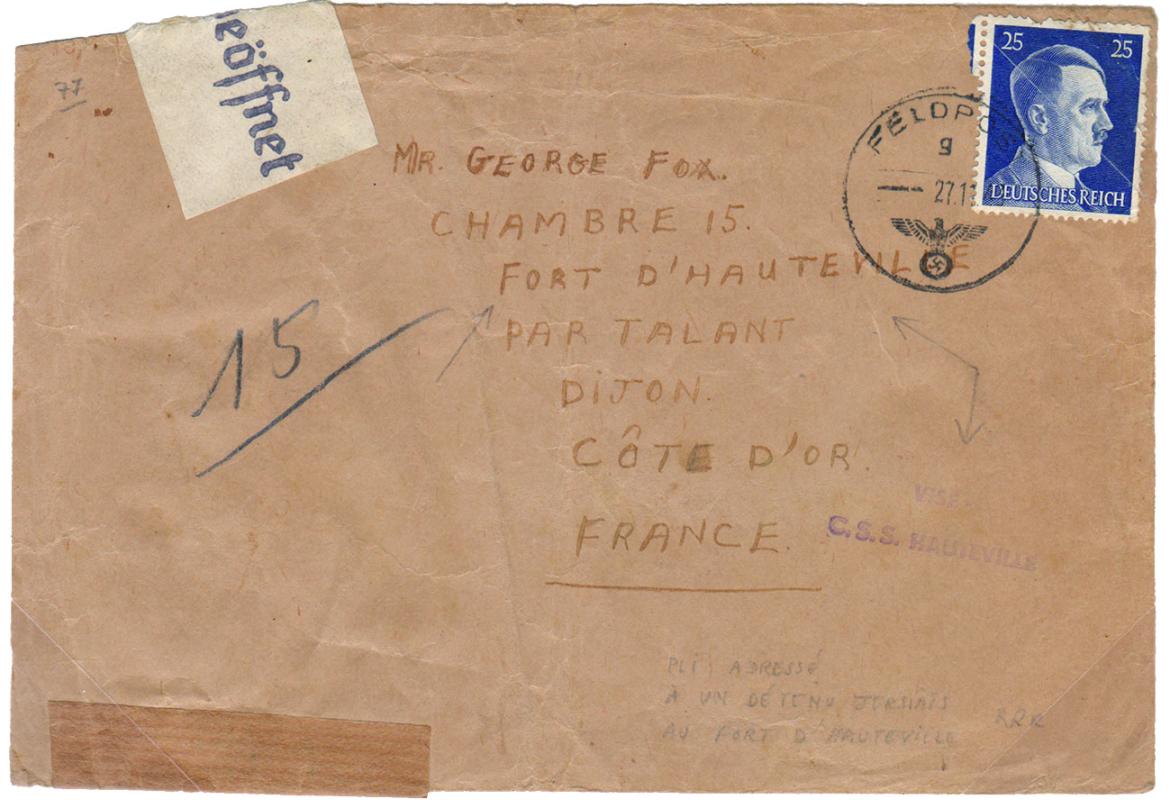 77
eöffnet
25 25
DEUTSCHES REICH
FELDPO
g
27.1
MR. GEORGE FOX.
CHAMBRE 15.
FORT D'HAUTEVILLE
PAR TALANT
DIJON.
CÔTE D'OR.
FRANCE.
15
VISÉ
C.S.S. HAUTEVILLE
PLI ADRESSÉ
À UN DÉTENU JERSIAIS RRR
AU FORT D'HAUTEVILLE